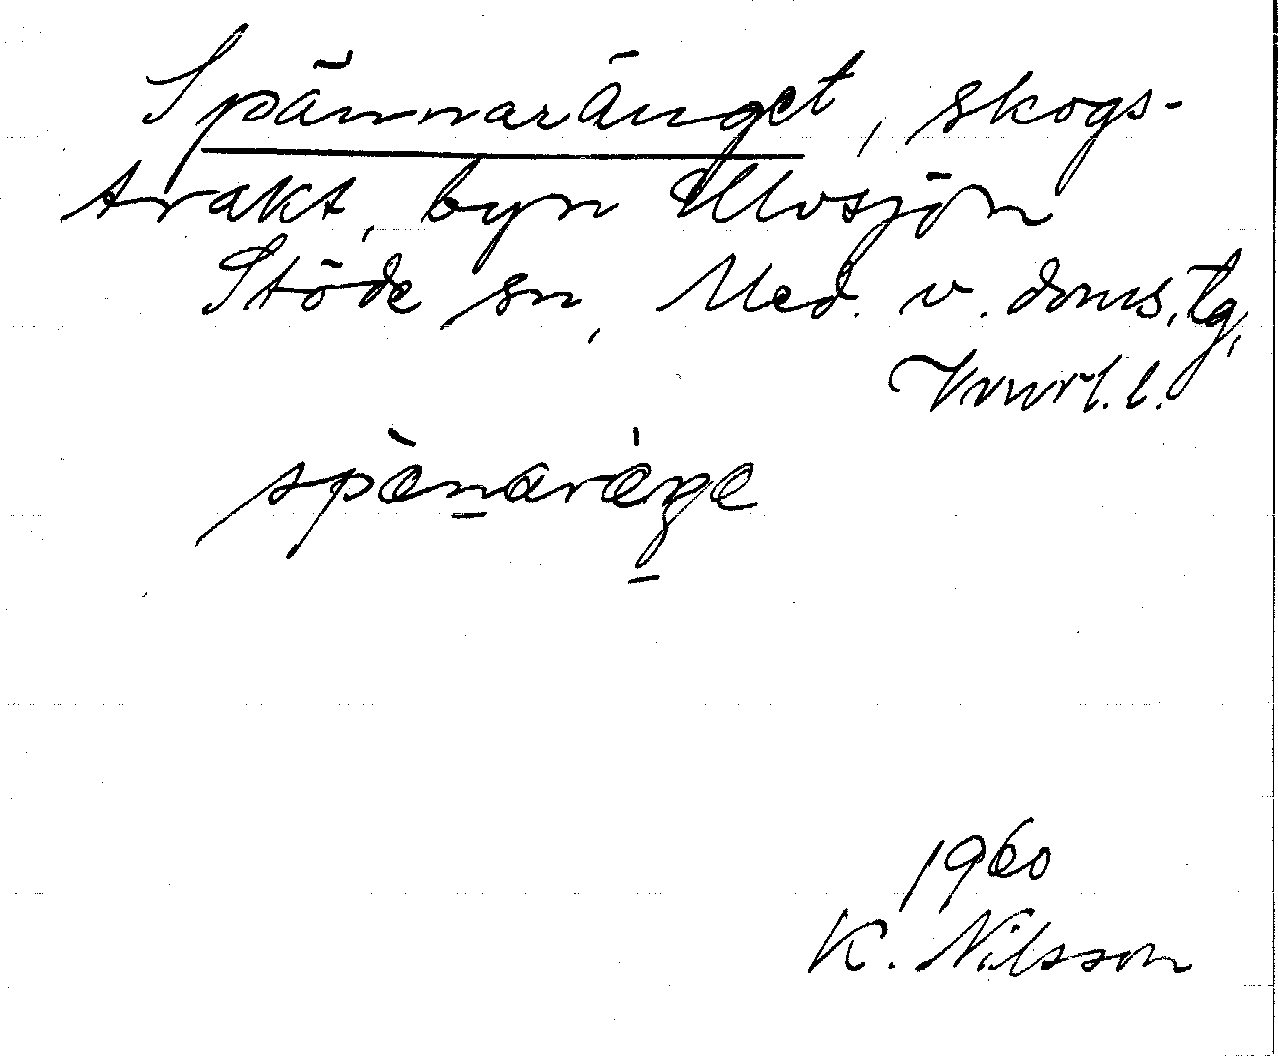 Spännaränget, skogs-
trakt, byn Ulvsjön
Stöde sn, Med. v. doms. tg,
Vnrl. l.
spænaræŋe
1960
K. Nilsson